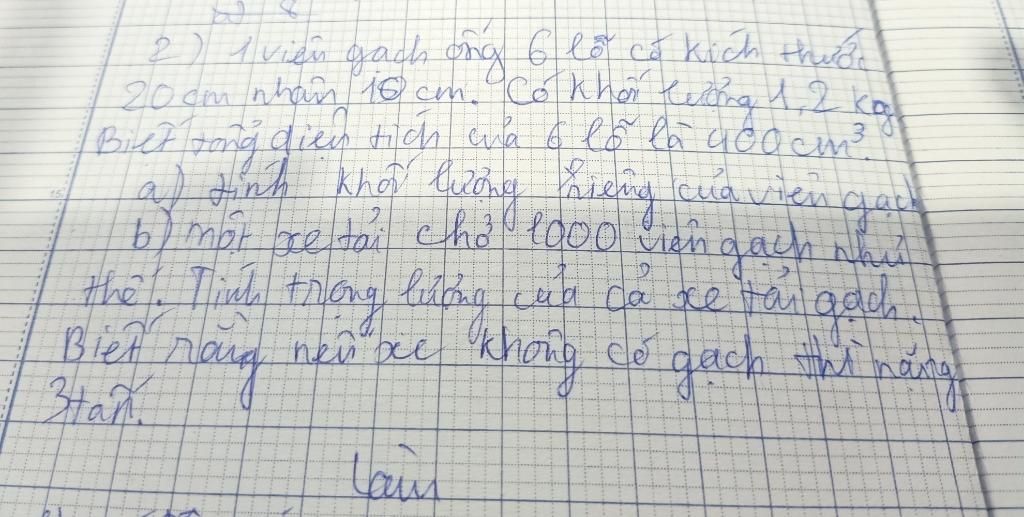 2) 1 viên gạch ống 6 lỗ có kích thước
20 cm nhân 10 cm. Có khối lượng 1,2 kg
Biết tổng diện tích của 6 lỗ là 400 cm³.
a) tính khối lượng riêng của viên gạch
b) một xe tải chở 1000 viên gạch như
thế. Tính trọng lượng của cả xe tải gạch.
Biết rằng nếu xe không có gạch thì nặng
3 tấn.
làm